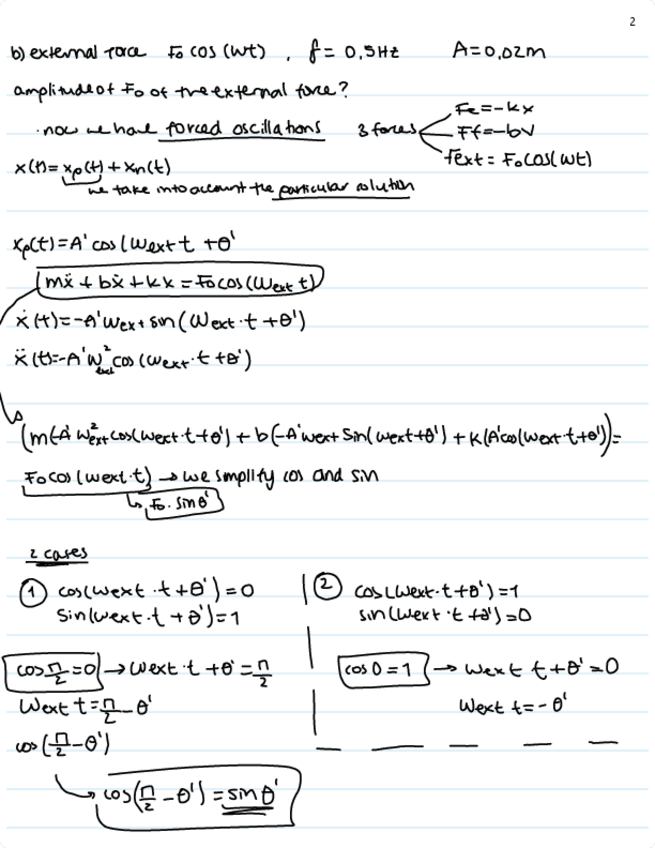 2
b) external force F₀ cos(wt) , f = 0,5Hz A=0,02m
amplitude of F₀ of the external force?
· now we have forced oscillations 3 forces
Fe=-kx
Ff=-bv
Fext = F₀cos(wt)
x(t)=xp(t)+xn(t)
we take into account the particular solution
xp(t)=A' cos(wext t +θ'
mẍ + bẋ + kx = F₀cos(wext t)
ẋ(t)=-A'wext sin(wext·t+θ')
ẍ(t)=-A'w²ext cos(wext·t+θ')
(m(-A' w²ext cos(wext·t+θ') + b(-A'wext sin(wext+θ') + k(A'cos(wext·t+θ'))=
F₀cos(wext·t) → we simplify cos and sin
↳ F₀ · sinθ'
2 cases
① cos(wext·t+θ')=0
sin(wext·t+θ')=1
cos π/2=0 → wext·t+θ'=π/2
wext t=π/2-θ'
cos(π/2-θ')
cos(π/2-θ')=sinθ'
② cos(wext·t+θ')=1
sin(wext·t+θ')=0
cos 0=1 → wext t+θ'=0
wext t=-θ'